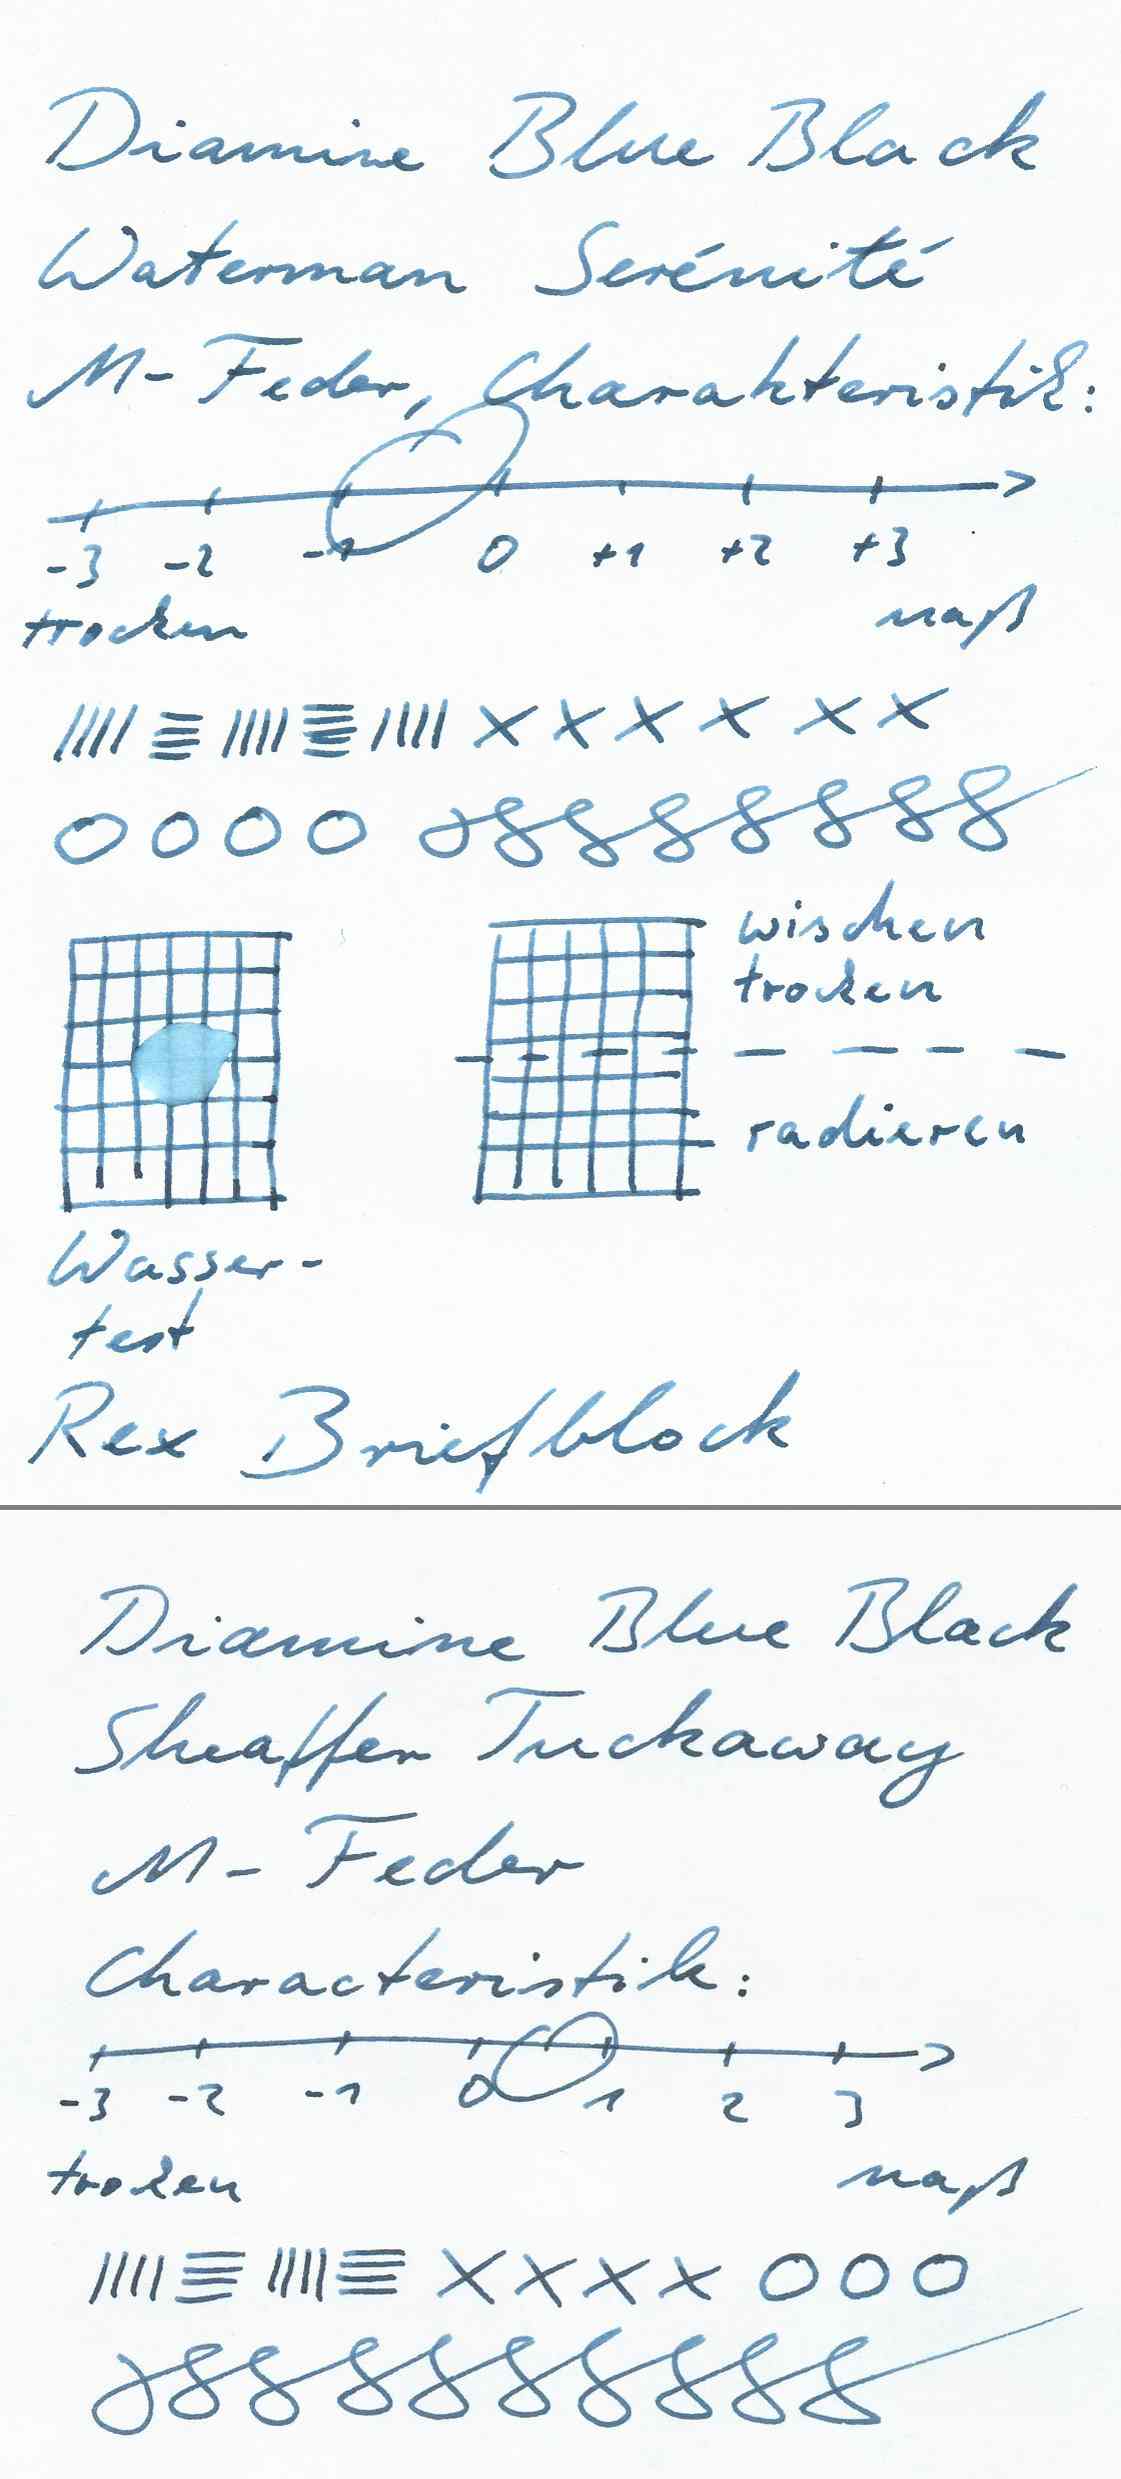 Diamine Blue Black
Waterman Sérénité
M-Feder, Charakteristik:
-3 -2 -1 0 +1 +2 +3
trocken naß
wischen
trocken
radieren
Wasser-
test
Rex Briefblock
Diamine Blue Black
Sheaffer Tuckaway
M-Feder
Characteristik:
-3 -2 -1 0 1 2 3
trocken naß